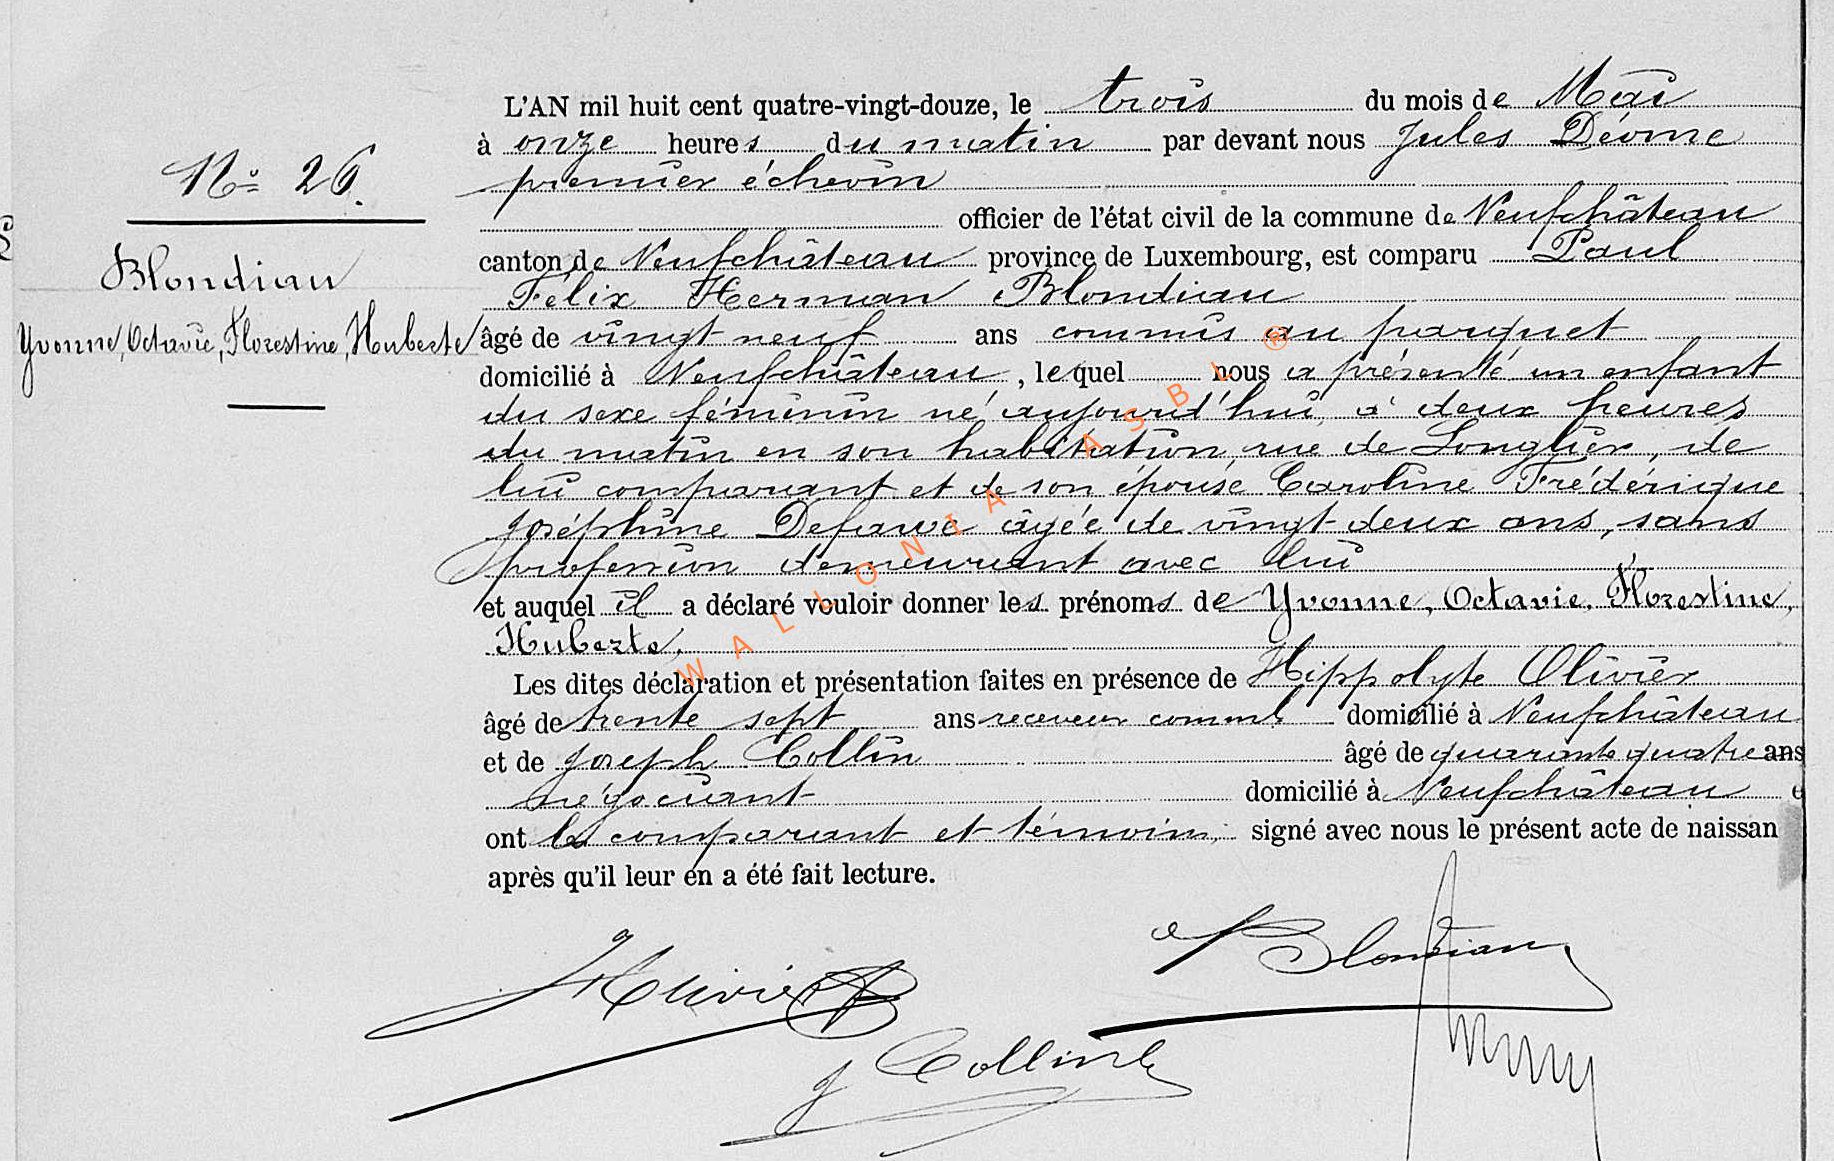 L'AN mil huit cent quatre-vingt-douze, le trois du mois de Mai
à onze heures du matin par devant nous Jules Déome
premier échevin
officier de l'état civil de la commune de Neufchâteau
canton de Neufchâteau province de Luxembourg, est comparu Paul
Félix Herman Blondiau
âgé de vingt neuf ans commis au parquet
domicilié à Neufchâteau, lequel nous a présenté un enfant
du sexe féminin né aujourd'hui, à deux heures
du matin en son habitation, rue de Longlier, de
lui comparant et de son épouse Caroline Frédérique
Joséphine Defawe âgée de vingt-deux ans, sans
profession demeurant avec lui
et auquel il a déclaré vouloir donner les prénoms de Yvonne, Octavie, Florestine,
Huberte.
Les dites déclaration et présentation faites en présence de Hippolyte Olivier
âgé de trente sept ans receveur comml domicilié à Neufchâteau
et de Joseph Collin âgé de quarante quatre ans
négociant domicilié à Neufchâteau e
ont les comparant et témoins, signé avec nous le présent acte de naissan
après qu'il leur en a été fait lecture.
No 26.
Blondiau
Yvonne, Octavie, Florestine, Huberte
HOlivier
Blondiau
J Collin
WALLONIA ASBL ®